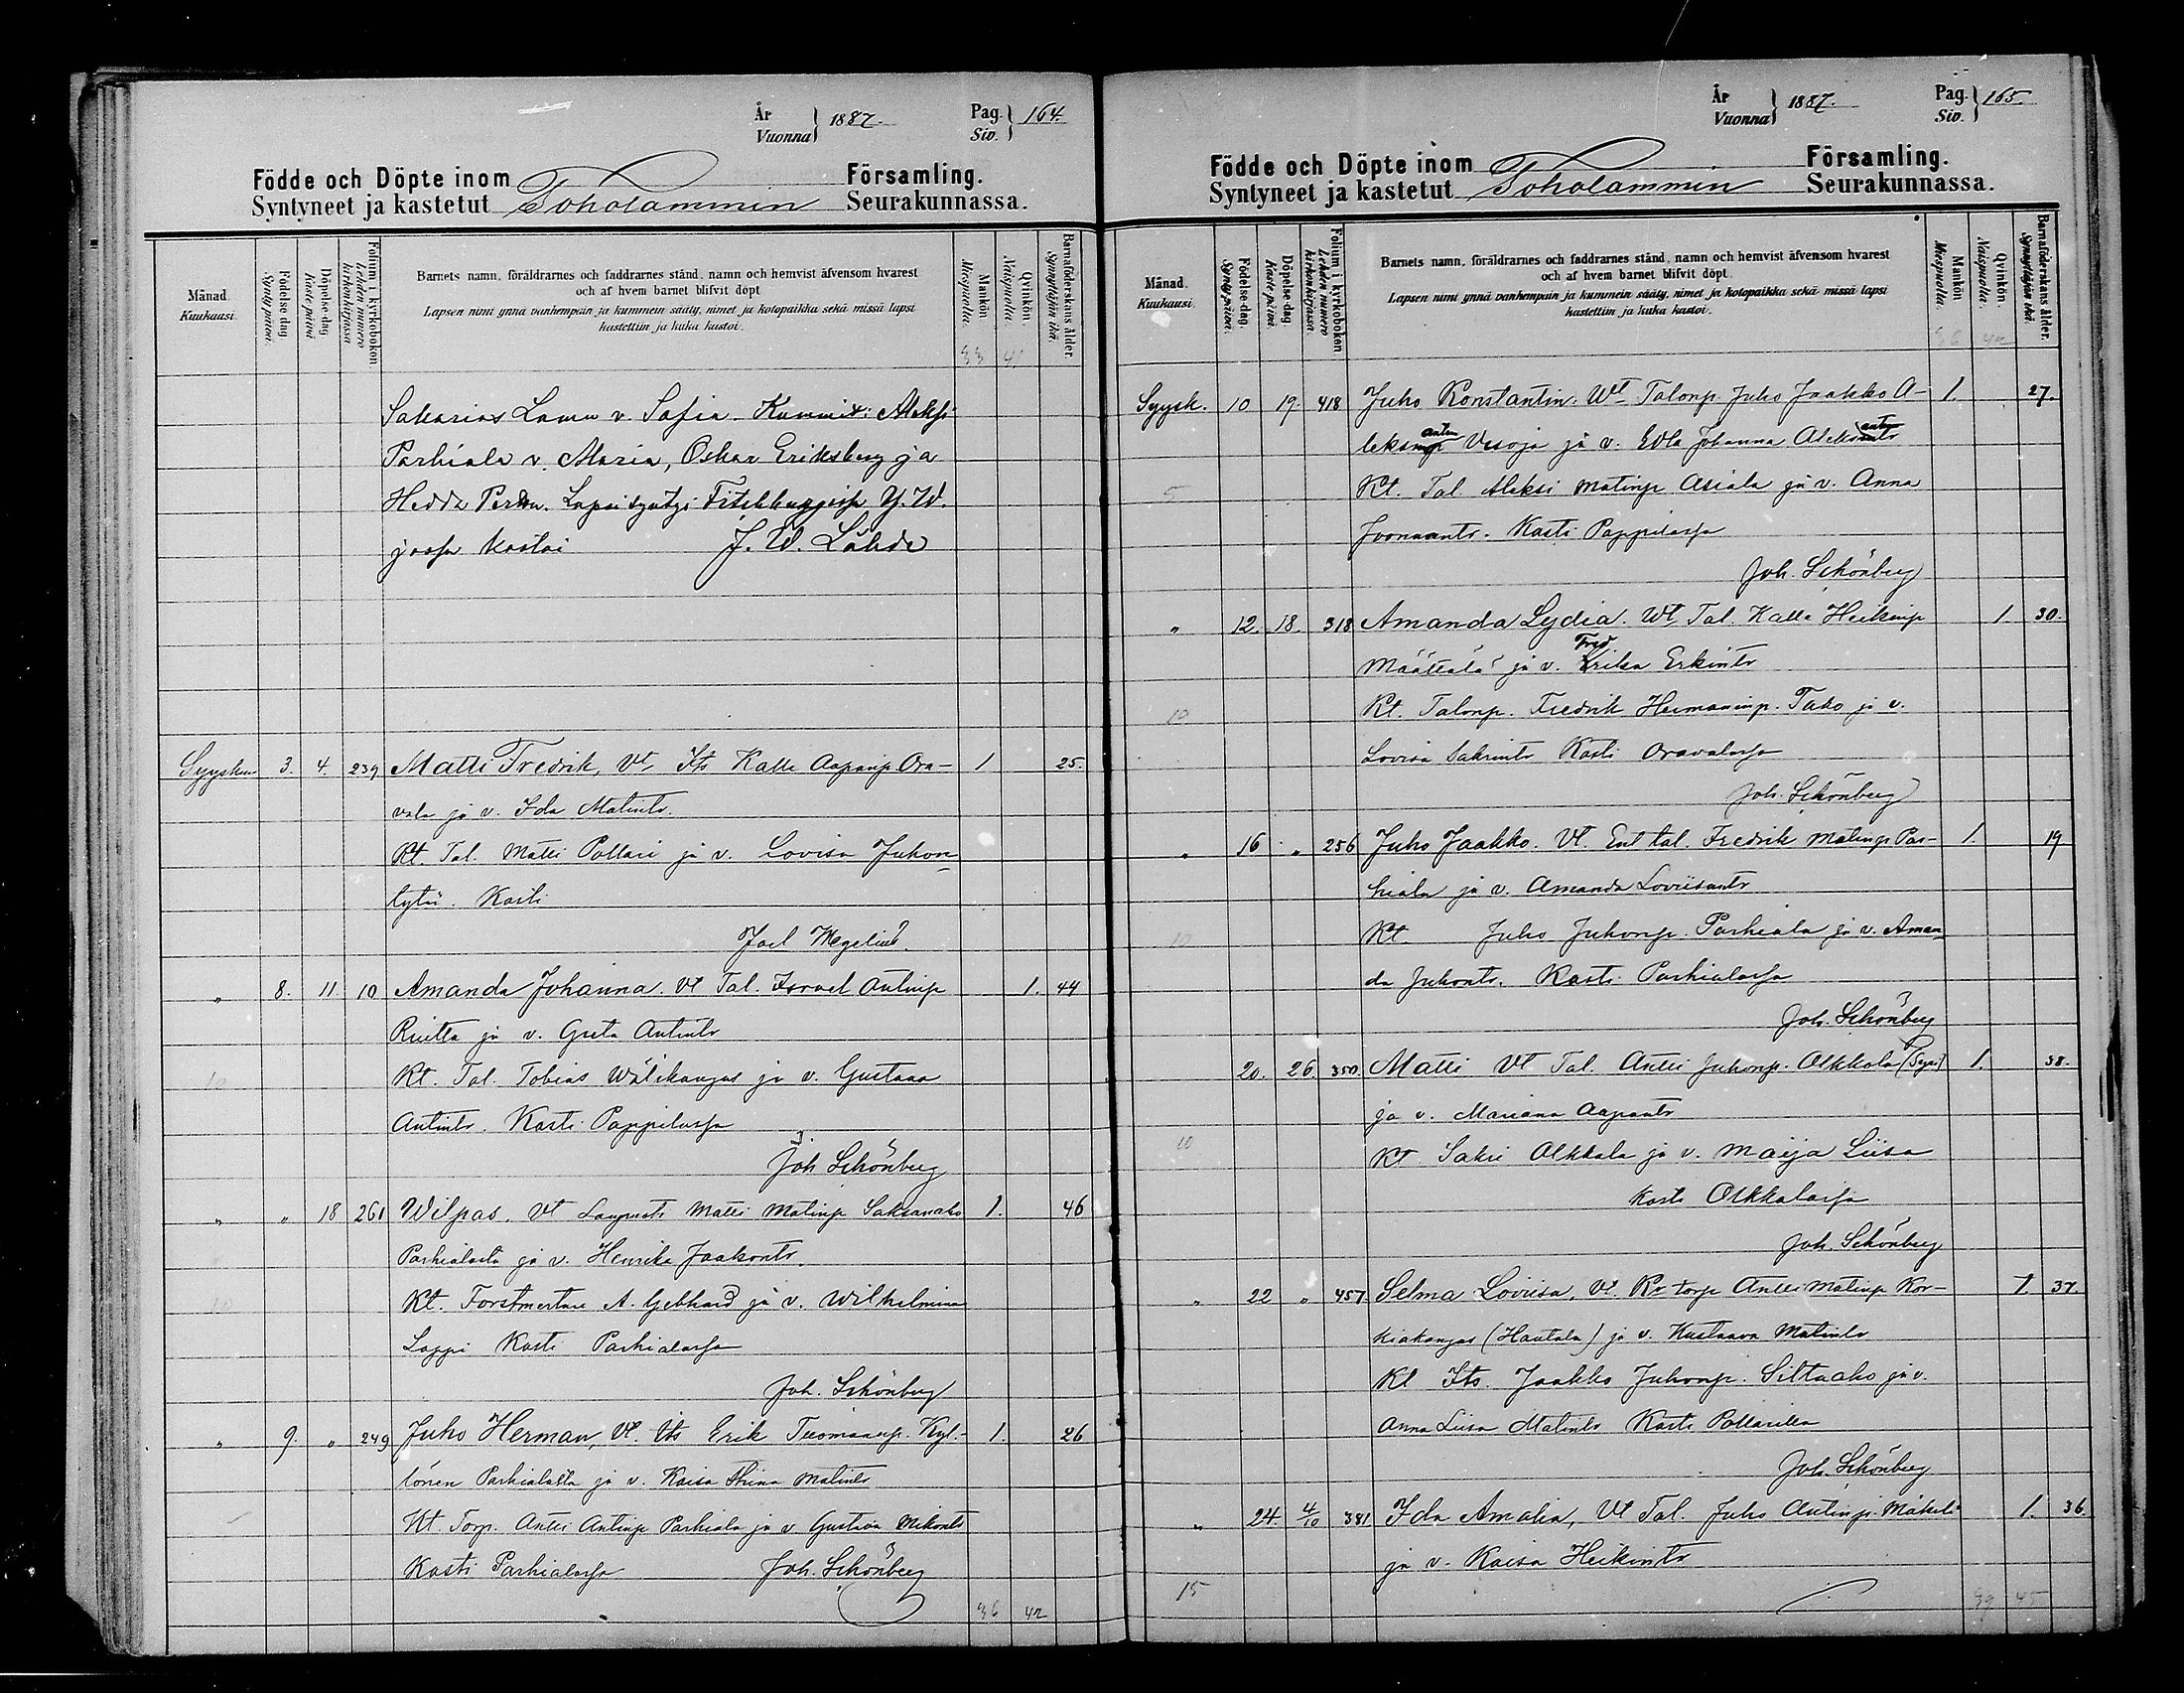 År
Vuonna } 1887. Pag. Siv. } 164.
Födde och Döpte inom Församling.
Syntyneet ja kastetut Toholammin Seurakunnassa.
Månad. Kuukausi.
Födelse-dag Synty päivä.
Döpelse-dag Kaste päivä
Folium i kyrkoboken Lehden numero kirkonkirjassa
Barnets namn, föräldrarnes och faddrarnes stånd, namn och hemvist äfvensom hvarest
och af hvem barnet blifvit döpt
Lapsen nimi ynnä vanhempain ja kummein sääty, nimet ja kotopaikka sekä missä lapsi
kastettiin ja kuka kastoi.
Mankön Miespuolia.
Qvinkön. Naispuolia.
Barnaföderskans ålder. Synnyttäjän ikä.
33 41
Sakarias Lamu v. Sofia. Kummit: Aleksi
Parhiala v. Maria, Oskar Eriksberg ja
Hedda Lapsi syntyi Y. W.
jossa kastoi J. W. Lähde
Syyskuu 3. 4. 239 Matti Fredrik, Vt. Its Kalle Aapanp Ora- 1 25.
vala ja v. Ida Matints.
Kt. Tal. Matti Pollari ja v. Lovisa Juhon
tytär. Kasti
Joel Wegelius
" 8. 11. 10 Amanda Johanna. Vt Tal. Israel Antinp 1. 44
Riutta ja v. Greta Antints
10 Kt. Tal. Tobias Wälikangas ja v. Gustava
Antints. Kasti Pappilassa
Joh Schönberg
" " 18 261 Wilpas. Vt Matti Matinp Saksanaho 1. 46
Parhialasta ja v. Henrika Jaakonts.
10 Kt. Forstmestare A. Gebhard ja v. Wilhelmina
Lappi Kasti Parhialassa
Joh. Schönberg
" 9. " 249 Juho Herman, Vt. Its Erik Tuomaanp. Kyl- 1. 26
lönen Parhialasta ja v. Kaisa Stina Matints
Kt. Torp. Antti Antinp Parhiala ja v Gustava Mikonts
Kasti Parhialassa Joh. Schönberg
36 42
År
Vuonna } 1887. Pag. Siv. } 165.
Födde och Döpte inom Församling.
Syntyneet ja kastetut Toholammin Seurakunnassa.
Månad. Kuukausi.
Födelse-dag. Synty päivä.
Döpelse-dag. Kaste päivä.
Folium i kyrkoboken Lehden numero kirkonkirjassa.
Barnets namn, föräldrarnes och faddrarnes stånd, namn och hemvist äfvensom hvarest
och af hvem barnet blifvit döpt.
Lapsen nimi ynnä vanhempain ja kummein sääty, nimet ja kotopaikka sekä missä lapsi
kastettiin ja kuka kastoi.
Mankön Miespuolia.
Qvinkön. Naispuolia.
Barnaföderskans ålder. Synnyttäjän ikä.
36 42
Syysk. 10 19. 418 Juho Konstantin. Wt Talonp. Juho Jaakko A- 1. 27.
leksinp Wesoja ja v. Edla Johanna
5 Kt. Tal. Aleksi Matinp Asiala ja v. Anna
Joonaants. Kasti Pappilassa
Joh. Schönberg
" 12. 18. 318 Amanda Lydia. Wt. Tal. Kalle Heikinp 1. 30.
Määttälä ja v. Fredrika Erkints
10 Kt. Talonp. Fredrik Hermaninp. Tako ja v.
Lovisa Sakrints Kasti Oravalassa
Joh. Schönberg
" 16 " 256 Juho Jaakko. Vt. Ent tal. Fredrik Matinp Par- 1. 19.
hiala ja v. Amanda Loviisants
10 Kt. Juho Juhonp. Parhiala ja v. Aman
da Juhonts. Kasti Parhialassa
Joh. Schönberg
20. 26. 350. Matti Vt Tal. Antti Juhonp. Olkkola 1. 38.
ja v. Mariana Aapants
10 Kt. Sakri Olkkola ja v. Maija Liisa
Kasti Olkkolassa
Joh. Schönberg
" 22 " 457. Selma Loviisa, Vt. Kr torp Antti Matinp Kor- 1. 37.
kiakangas (Hautala) ja v. Kustaava Matints
Kt Its. Jaakko Juhonp. Siltaaho ja v.
Anna Liisa Matints Kasti Pollarilla
Joh. Schönberg
" 24. 4/10 381 Ida Amalia, Vt Tal. Juho Antinp. Mäkelä 1. 36.
ja v. Kaisa Heikints
15 39 45